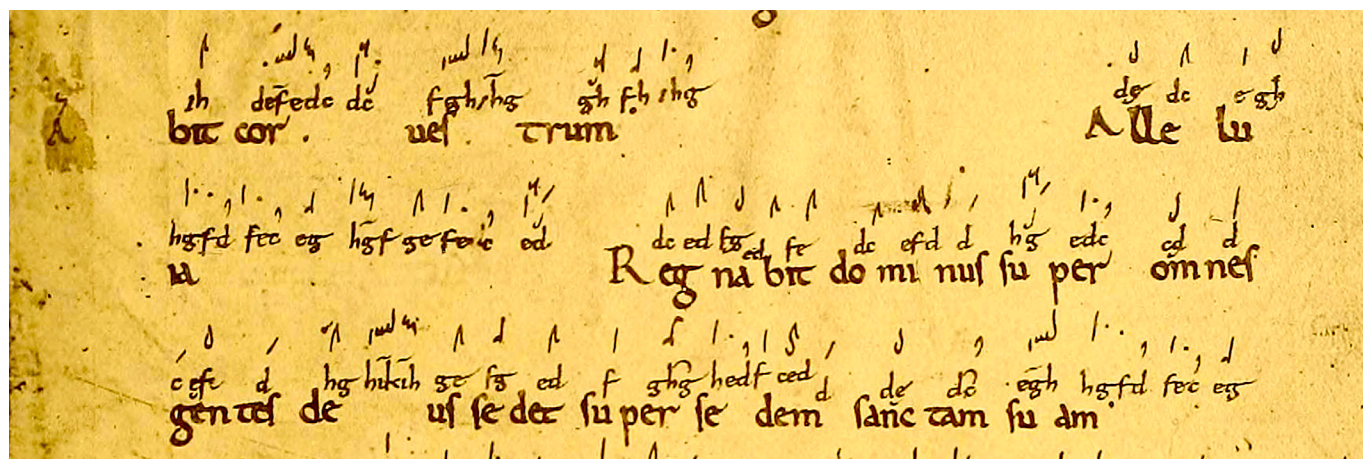 ih defedc dc fghihg gh fh ihg de dc e gh
A bit cor . ueſ . trum Alle lu
hgfd fec eg hgf ge ed dc ed fg ed fe dc efd d hg edc cd d
ia Reg na bit do mi nuſ ſu per om neſ
c efe d hg hikih ge fg ed f ghg hedf ced d de dc egh hgfd fec eg
gen teſ de uſ ſe det ſu per ſe dem ſanc tam ſu am .